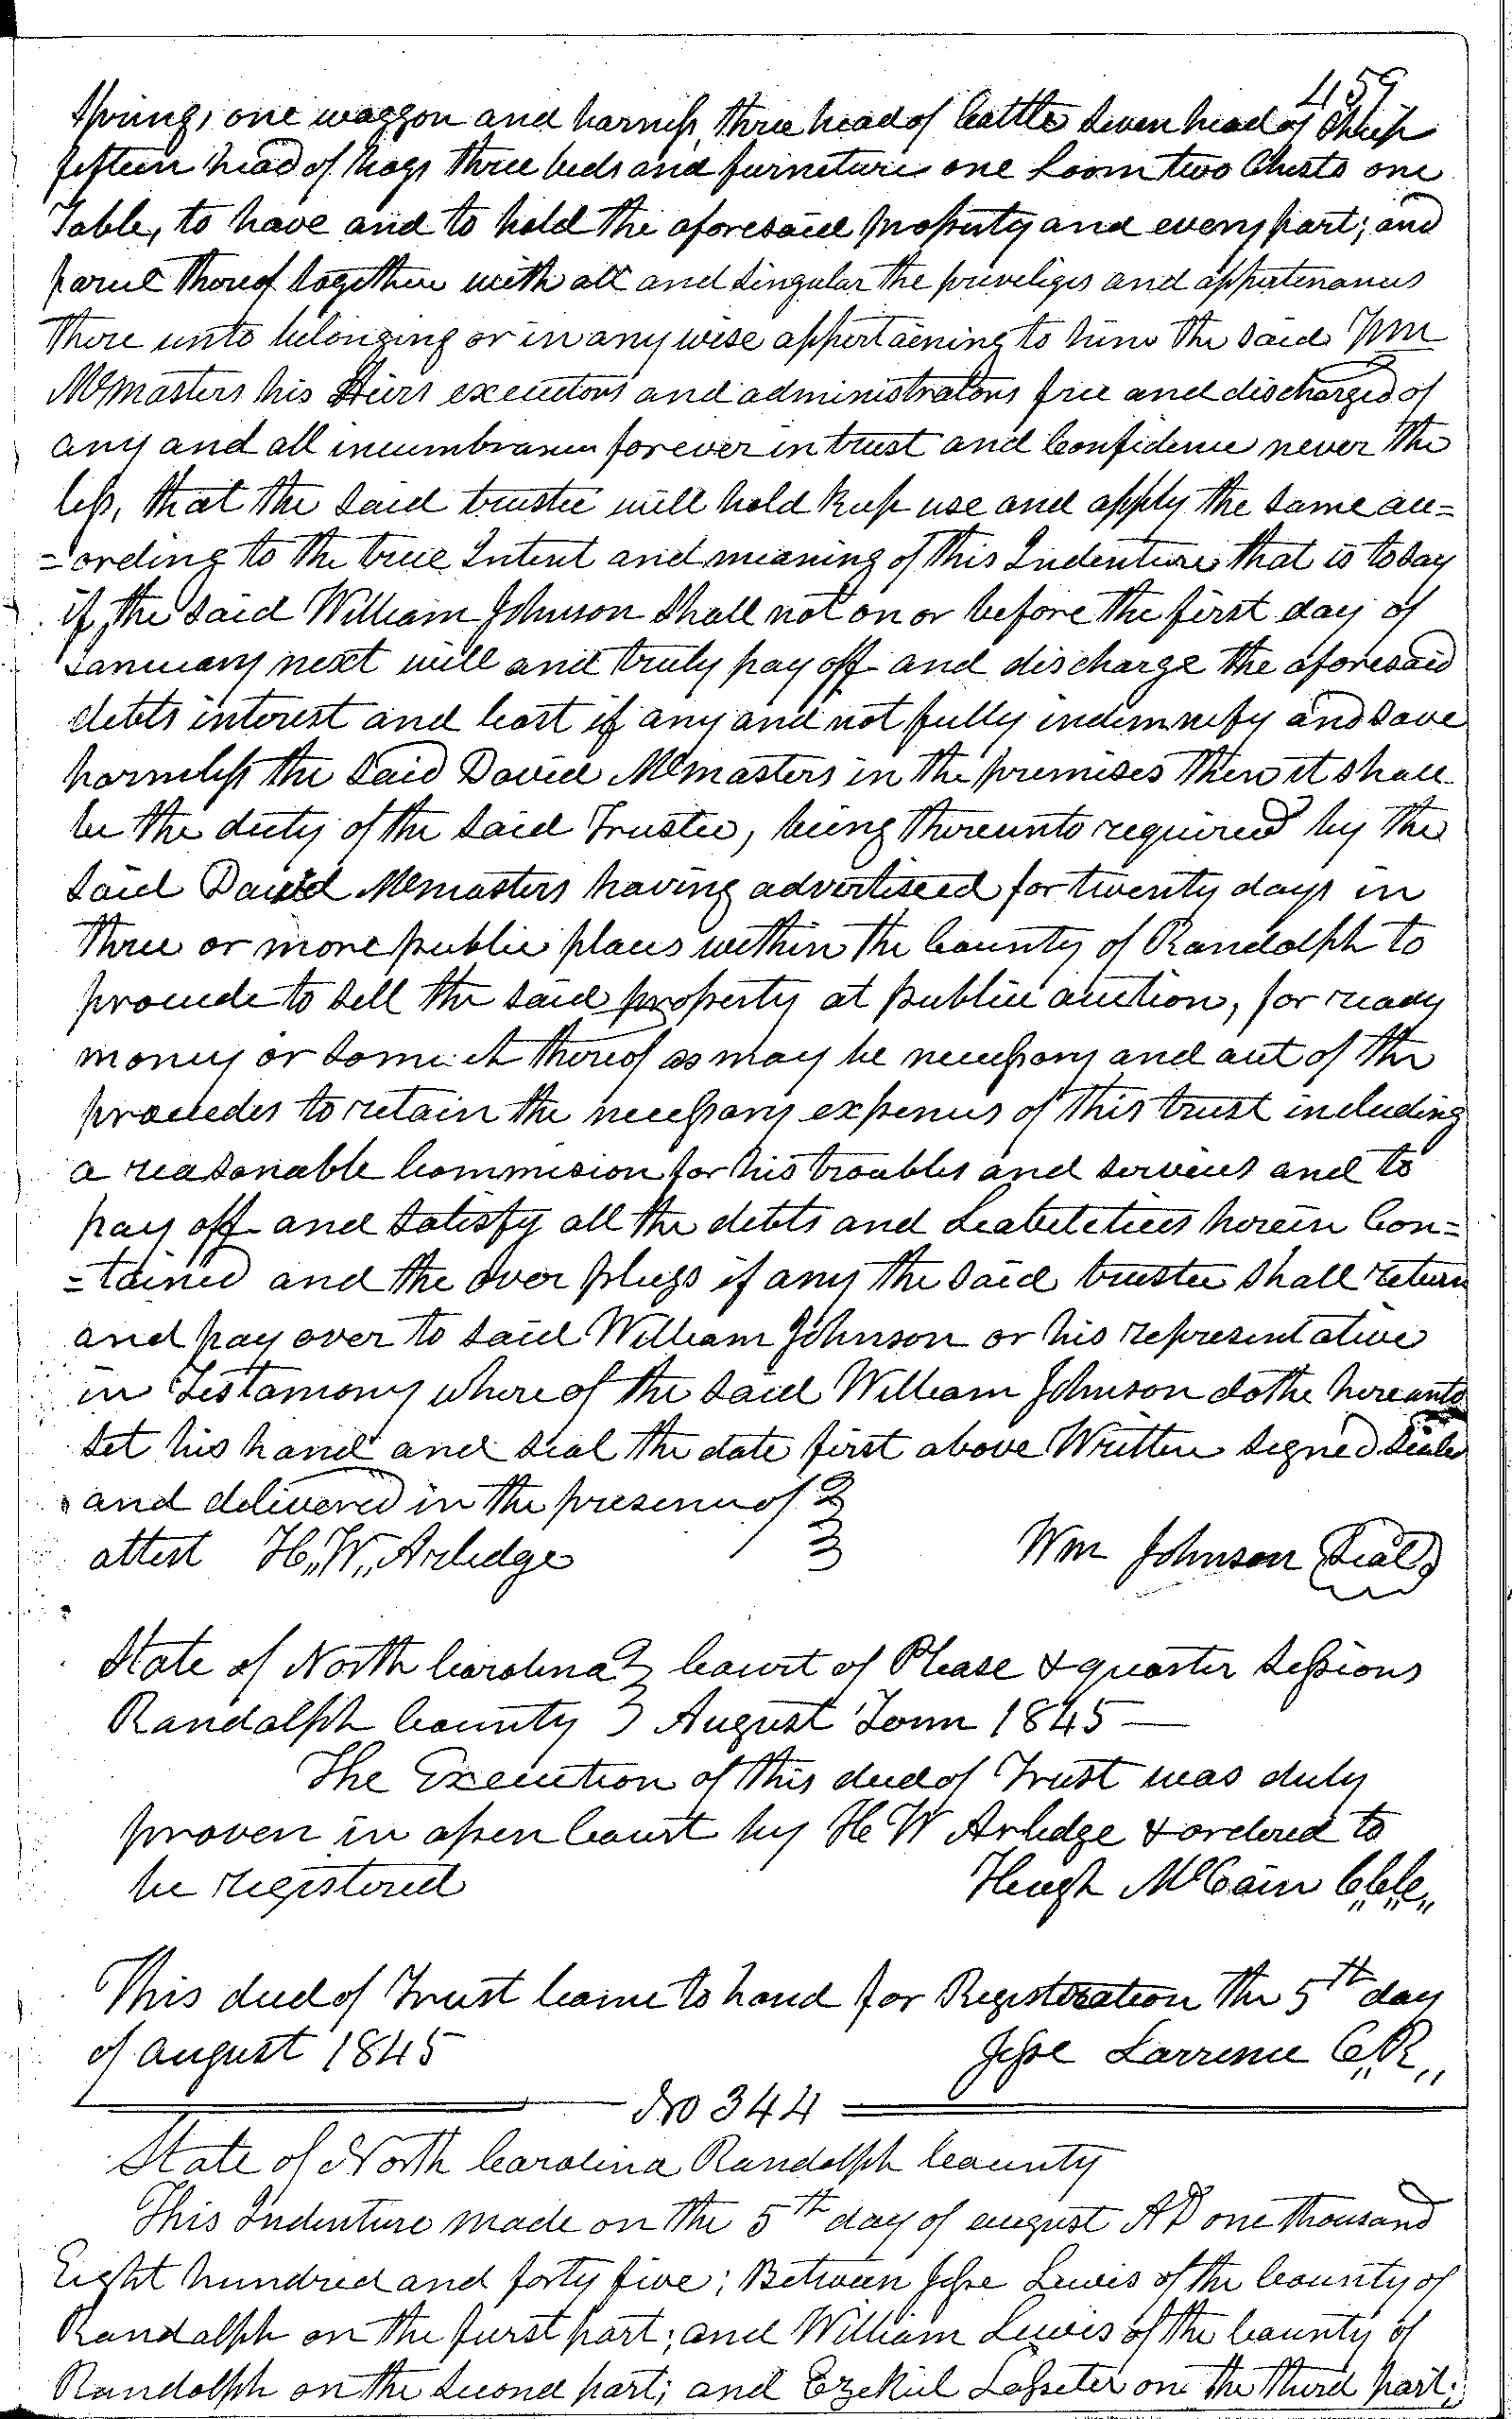 459
Spring, one waggon and harness, three head of Cattle Seven head of Sheep
fifteen head of hogs three beds and furneture one Loom two Chests one
Table, to have and to hold the aforesaid property and every part; and
parcel thereof together with all and singular the priveliges and appertenances
there unto belonging or in any wise appertaining to him the said Wm
McMasters his Heirs executors and administrators free and discharged of
any and all incumbrances forever in trust and Confidence never the
less, that the said trustee will hold keep use and apply the same acc=
=ording to the true Intent and meaning of this Indenture that is to say
if the said William Johnson shall not on or before the first day of
January next well and truly pay off and discharge the aforesaid
debts interest and Cost if any and not fully indemnify and save
harmless the said David McMasters in the premises then it shall
be the duty of the said Trustee, being thereunto required by the
said David McMasters having advertiseed for twenty days in
three or more public places within the County of Randolph to
procede to sell the said property at public auction, for ready
money or so much thereof as may be necessary and out of the
procedes to retain the necessary expenses of this trust including
a reasonable Commision for his troubles and services and to
pay off and satisfy all the debts and Leabiletiees herein Con=
=tained and the over pluss if any the said trustee shall return
and pay over to said William Johnson or his representative
in Testamony where of the said William Johnson dothe hereunto
set his hand and seal the date first above Written signed Sealed
and delivered in the presence of
attest H,,W,, Arledge Wm Johnson (Seal)
State of North Carolina Court of Please & quarter Sessions
Randolph County August Term 1845 —
The Execution of this deed of Trust was duly
proven in open Court by H W Arledge & ordered to
be registered Hugh McCain C,,C,,C,,
This deed of Trust Came to hand for Registeration the 5th day
of august 1845 Jesse Larrence C,,R,,
No 344
State of North Carolina Randolph County
This Indenture made on the 5th day of august AD one thousand
Eight hundred and forty five; Between Jesse Lewis of the County of
Randolph on the furst part; and William Lewis of the County of
Randolph on the second part; and Ezekiel Lasseter on the third part;